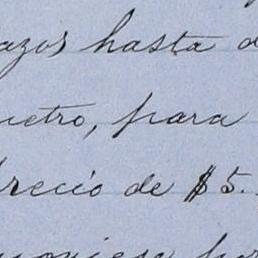 azos hasta d
metro, para
precio de $5.